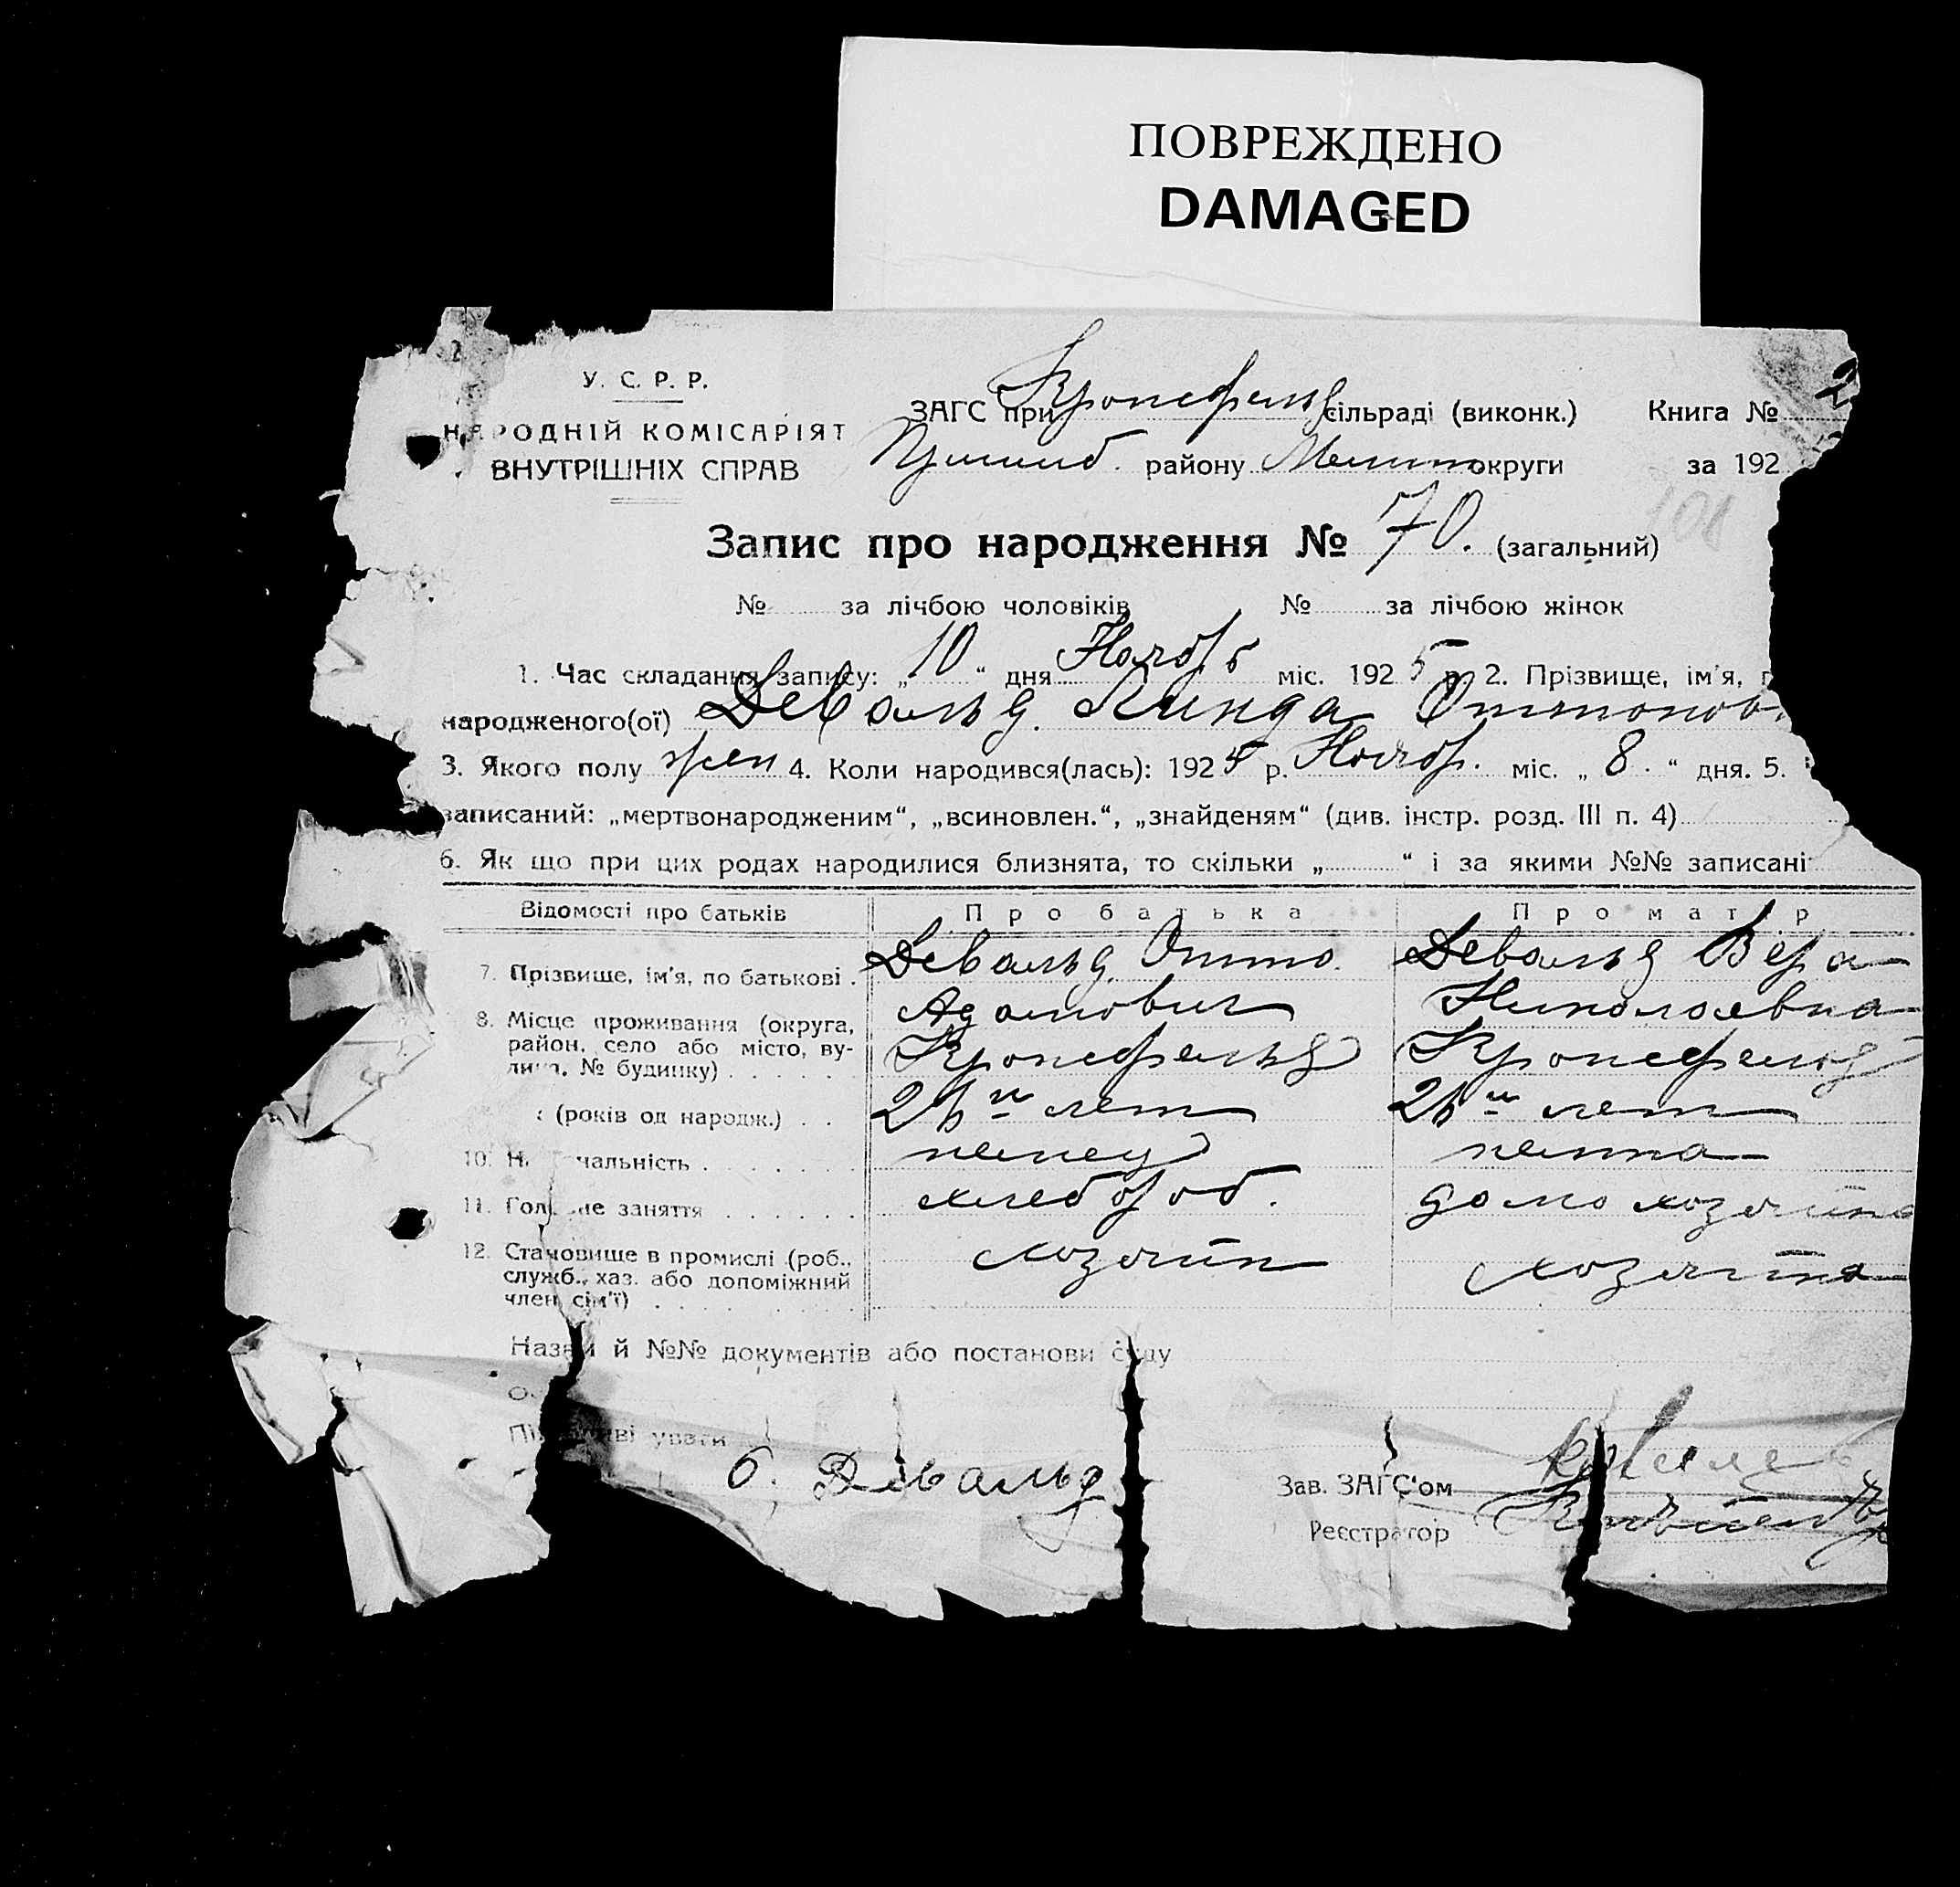 ПОВРЕЖДЕНО
DAMAGED
У. С. Р. Р.
НАРОДНІЙ КОМІСАРІЯТ
ВНУТРІШНІХ СПРАВ
ЗАГС при Кронсфельд сільраді (виконк.) Книга № 2
Пришиб. району Мелит округи за 192
Запис про народження № 70. (загальний)
101
№ за лічбою чоловіків № за лічбою жінок
1. Час складання запису: „ 10 “ дня Ноябр міс. 192 5 р. 2. Прізвище, ім'я,
народженого(ої) Девальд Линда Оттонов
3. Якого полу жен 4. Коли народився(лась): 192 5 р. Ноябр. міс. „ 8. “ дня. 5.
записаний: „мертвонародженим“, „всиновлен.“, „знайденям“ (див. інстр. розд. III п. 4)
6. Як що при цих родах народилися близнята, то скільки „ “ і за якими №№ записані
Відомості про батьків Про батька Про матір
7. Прізвище, ім'я, по батькові . Девальд Отто Адамович Девальд Вера Николаевна
8. Місце проживання (округа, район, село або місто, вулиця, № будинку) . . . . . Кронсфельд Кронсфельд
(років од народж.) . . лет лет
10. чальність . . . . . . . немец немка
11. заняття . . . . . . хлебороб. домохозяйка
12. Становище в промислі (роб., служб., хаз. або допоміжний член сім'ї) . . . . . . . . хозяин хозяйка
Назви й №№ документів або постанови суду
уваги
О. Девальд
Зав. ЗАГС'ом
Реєстратор